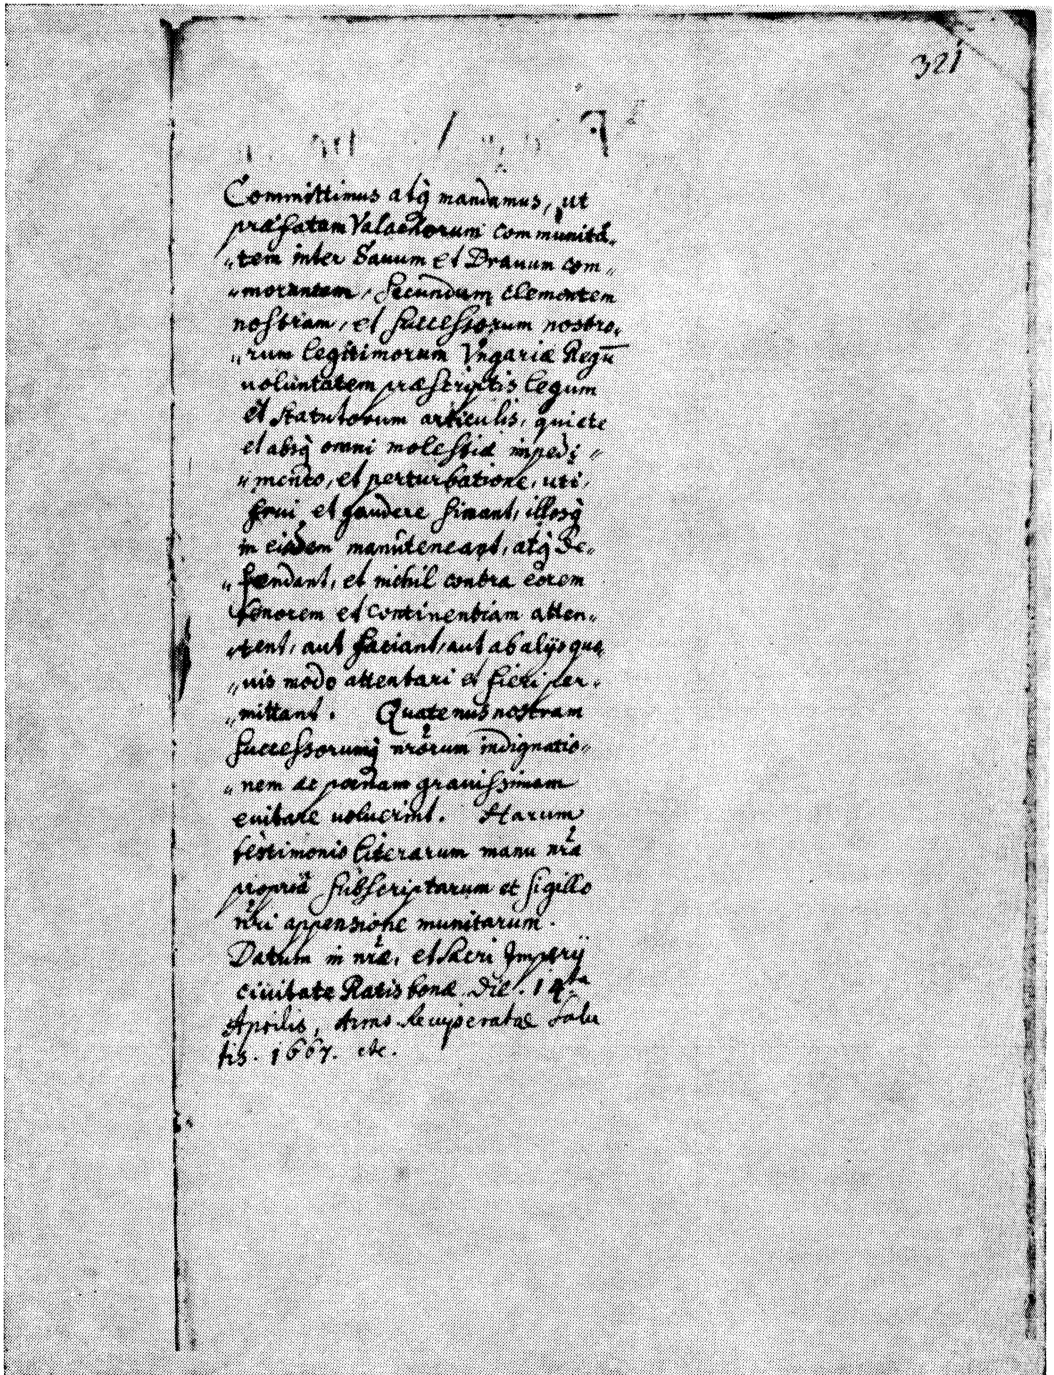 321
Committimus atq́ mandamus, ut
præfatam Valachorum communitá„
„tem inter Sauum et Drauum com„
„morantem, secundum clementem
nostram, et successorum nostro„
„rum legitimorum Vngariæ Regū
uoluntatem præscriptis legum
et statutorum articulis, quiete
et absq́ omni molestia impedi„
„mento, et perturbatione, uti,
frui et gaudere sinant, illosq́
in eisdem manuteneant, atq́ de„
„fendant, et nihil contra eorem
tenorem et continentiam atten„
„tent, aut faciant, aut ab alijs quo„
„uis modo attentari et fieri per„
„mittant. Quatenus nostram
successorumq́ nrōrum indignatio„
„nem ac poenam grauissimam
euitare uoluerint. Harum
testimonio literarum manu nrā
propriâ subscriptarum et sigilli
nrī appensione munitarum.
Datum in nrā, et Sacri Imperij
ciuitate Ratisbonæ Die. 14ta
Aprilis, Anno Recuperatae Salu
tis. 1667. etc.